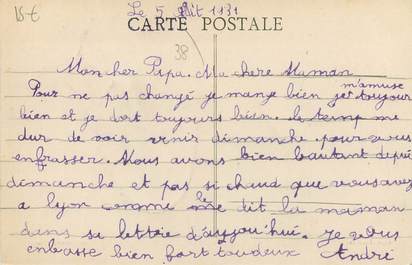 15€
Le 5 Août 1931
CARTE POSTALE
38
Mon cher Papa. Ma chere Maman
Pour ne pas changé je mange bien je m'amuse toujour
bien et je dort toujours bien. le temp me
dur de voir venir dimanche pour vous
enfrasser. Nous avons bien bautant depui
dimanche et pas si chaud que vous avez
a lyon comme le dit la maman
dans sa lettre d'aujou'hui. Je vous
enbasse bien fort toudeux André